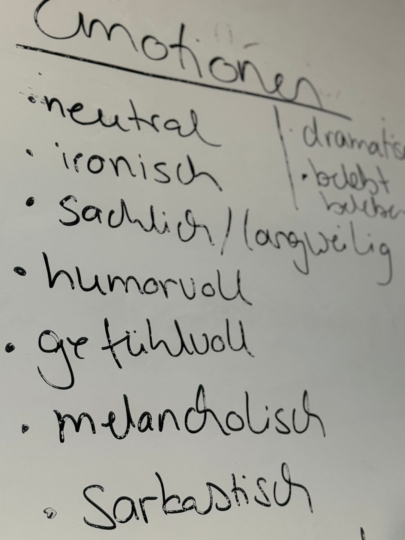 Emotionen
• neutral
• ironisch
• sachlich/langweilig
• humorvoll
• gefühlvoll
• melancholisch
• sarkastisch
• dramatisc
• belebt